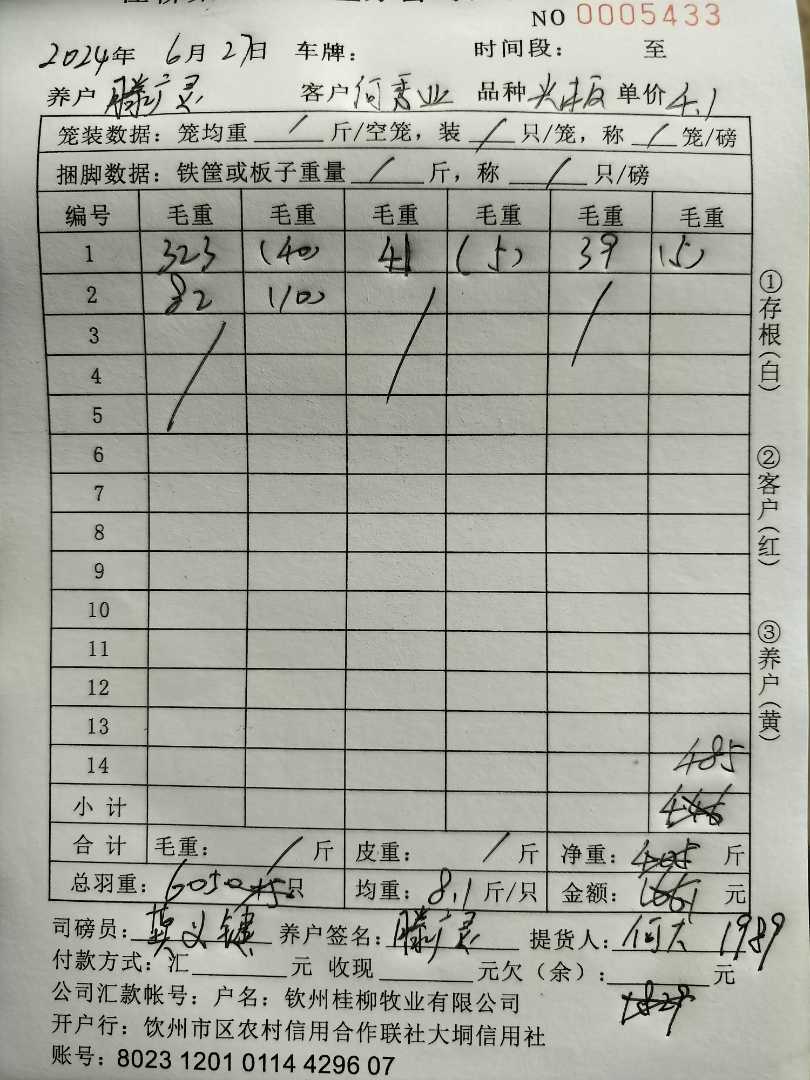 NO 0005433
2024年 6月 27日 车牌： 时间段： 至
养户 滕广灵 客户 何秀业 品种 单价 4.1
笼装数据：笼均重 / 斤/空笼，装 / 只/笼，称 / 笼/磅
捆脚数据：铁筐或板子重量 / 斤，称 / 只/磅
编号 毛重 毛重 毛重 毛重 毛重 毛重
1 323 (40) 41 (5) 39 (5)
2 82 (10) / /
3 /
4
5
6
7
8
9
10
11
12
13
14 485
小计 446
合计 毛重： / 斤 皮重： / 斤 净重： 405 斤
总羽重： 60 只 均重： 8.1 斤/只 金额： 1661 元
司磅员： 莫义键 养户签名： 滕广灵 提货人： 何 1989
付款方式：汇 元 收现 元欠（余）： 元
1828
公司汇款帐号：户名：钦州桂柳牧业有限公司
开户行：钦州市区农村信用合作联社大垌信用社
账号：8023 1201 0114 4296 07
①存根(白)
②客户(红)
③养户(黄)